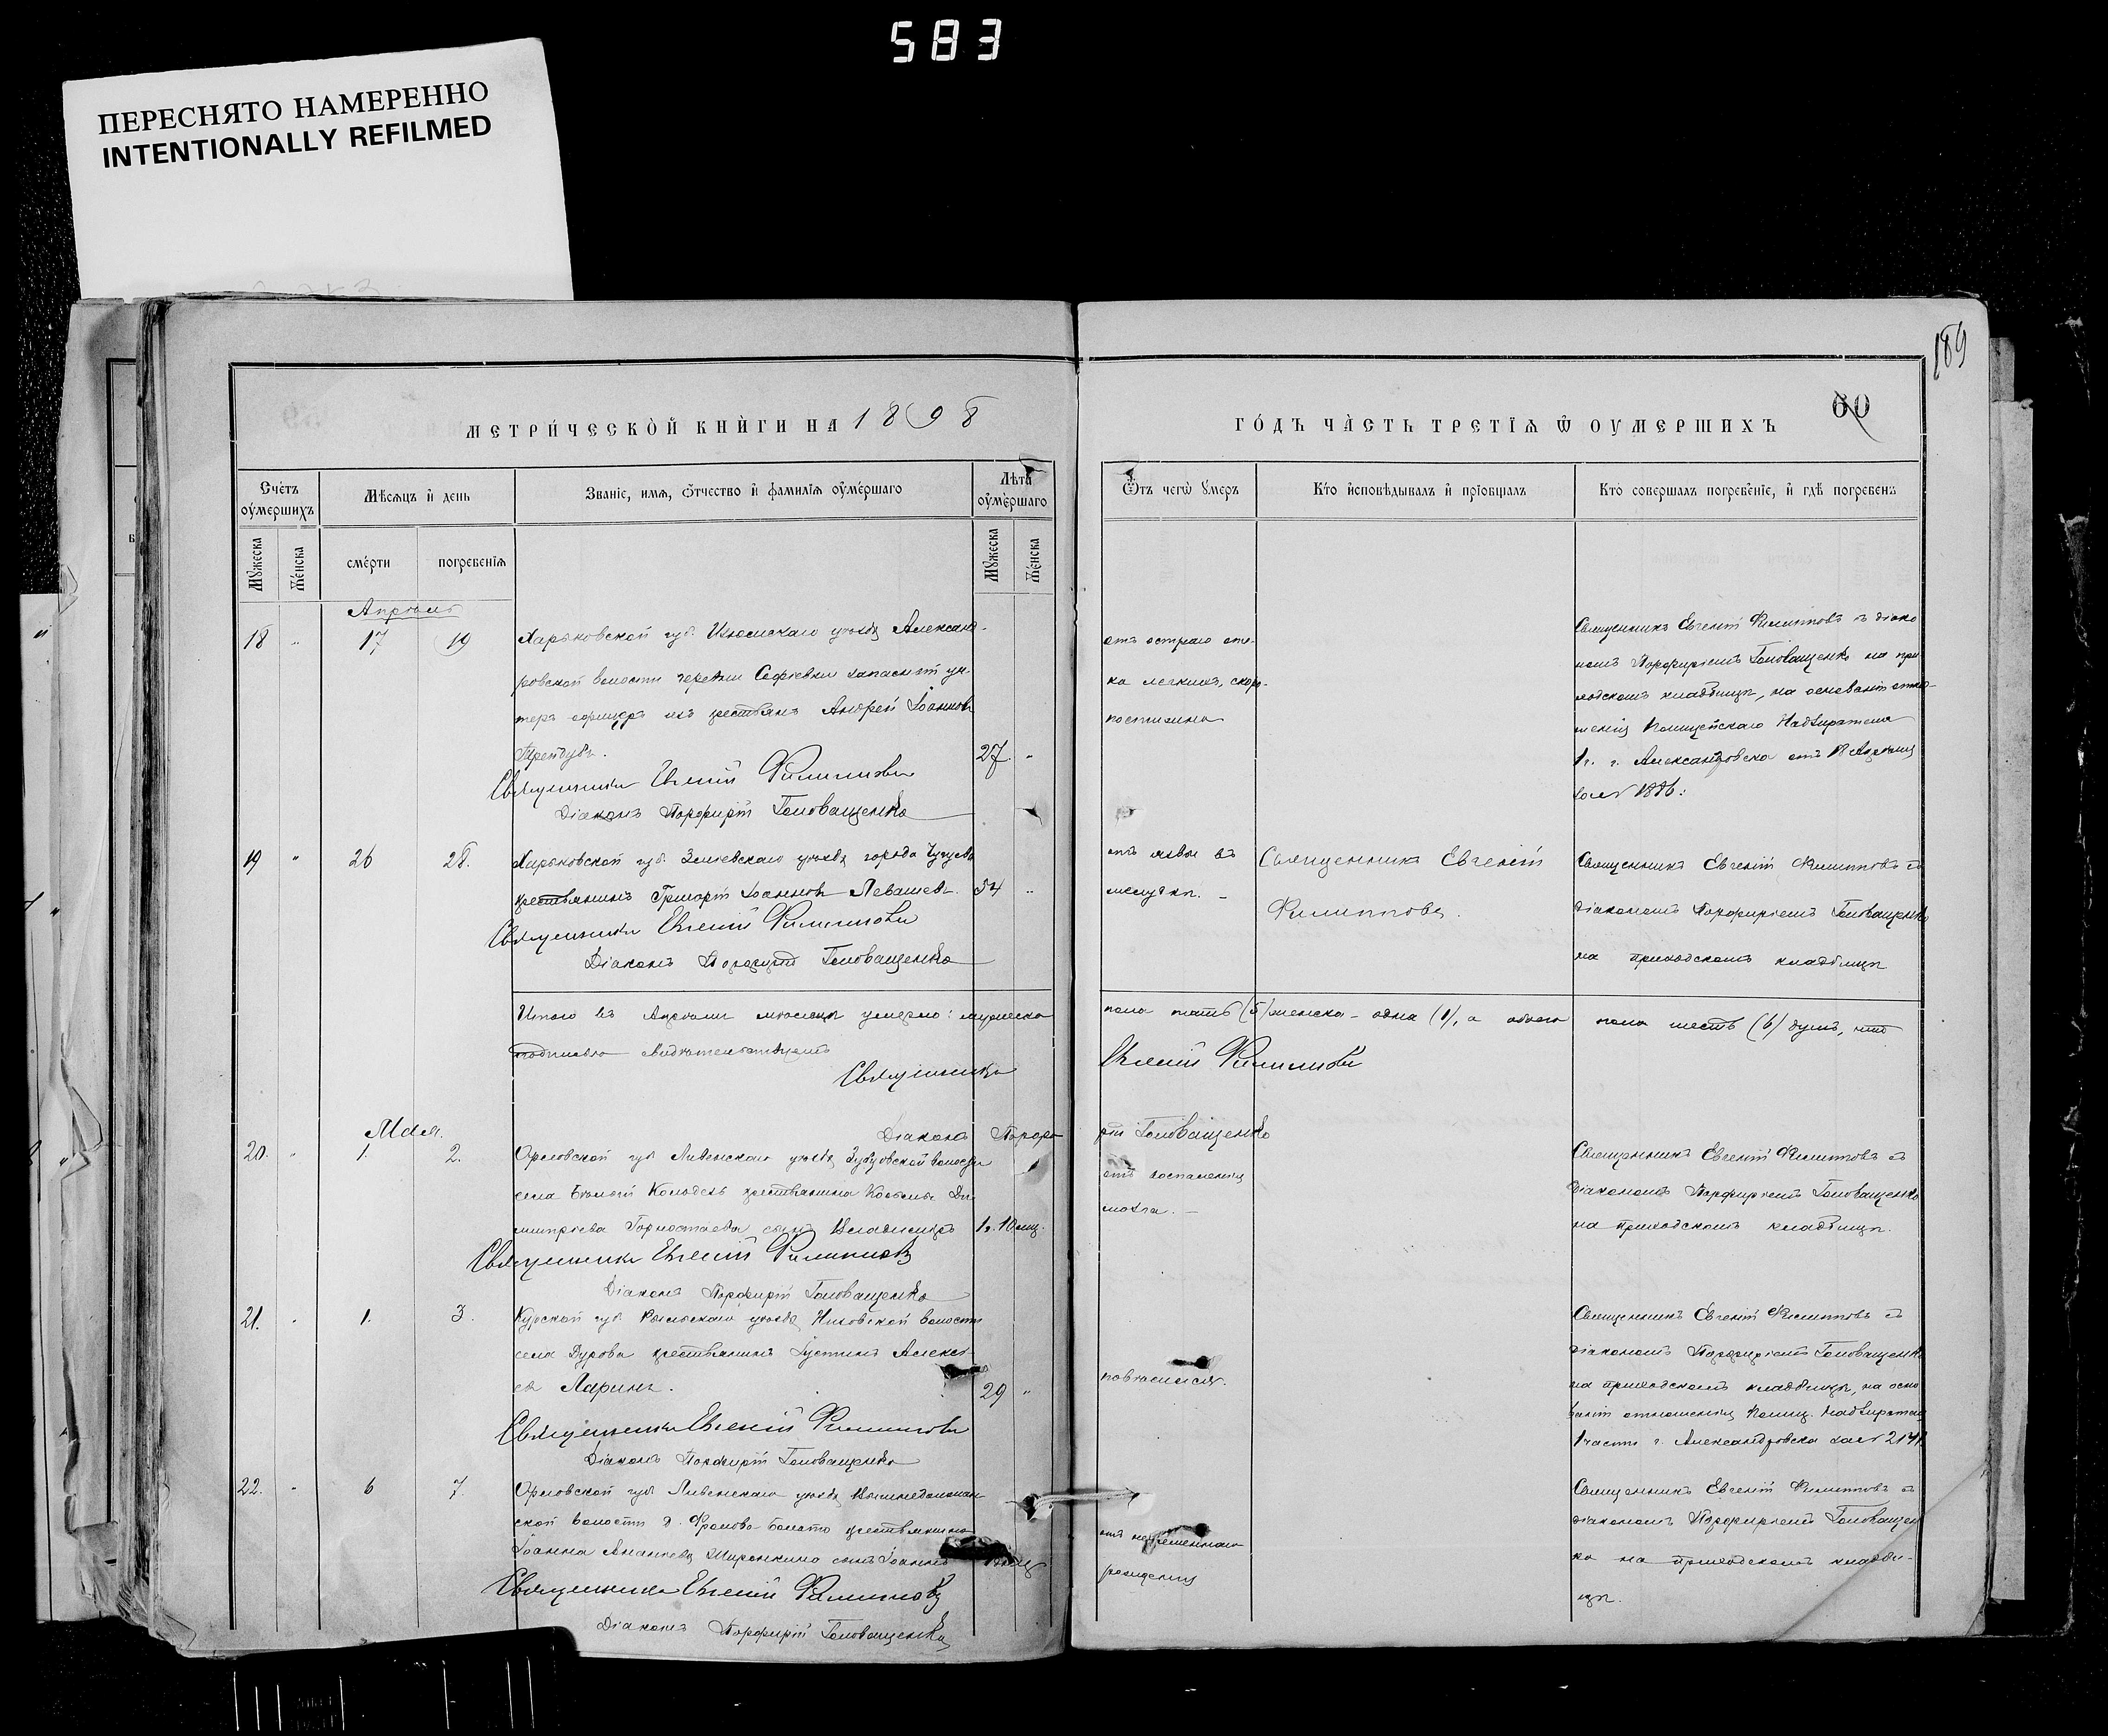 583
ПЕРЕСНЯТО НАМЕРЕННО
INTENTIONALLY REFILMED
189
60
МЕТРИ́ЧЕСКОЙ КНИ́ГИ НА 1898
ГО́ДЪ ЧА́СТЬ ТРЕТІЯ Ѡ ОУМЕРШИХЪ
Сче́тъ оумершихъ
Мѣсяцъ и день
Званіе, имя, отчество и фамилія оумершаго
Лѣта оумершаго
Мужеска
Женска
смерти
погребенія
Мужеска
Женска
Ѿтъ чегѡ умеръ
Кто исповѣдывалъ и пріобщалъ
Кто совершалъ погребеніе, и гдѣ погребенъ
Апрѣль
18 " 17 19
Харьковской губ. Изюмскаго уѣзда Александ-
ровской волости деревни Софіевки запасный ун-
теръ офицеръ изъ крестьянъ Андрей Іоанновъ
27 "
Священникъ Евгеній Филипповъ
Діаконъ Порфирій Головащенко
отъ остраго оте-
ка легкихъ, скоро-
постижно
Священникъ Евгеній Филипповъ съ діако
номъ Порфиріемъ Головащенко на при
ходскомъ кладбищѣ, на основаніи отно-
шенія Полицейскаго Надзирателя
1 ч. г. Александровска отъ 18 Апрѣля
за №
19 " 26 28.
Харьковской губ. Зміевскаго уѣзда города Чугуева
крестьянинъ Григорій Іоанновъ Левашевъ. 54 "
Священникъ Евгеній Филипповъ
Діаконъ Порфирій Головащенко
отъ язвы въ
желудкѣ. –
Священникъ Евгеній
Филипповъ.
Священникъ Евгеній Филипповъ съ
діакономъ Порфиріемъ Головащенко
на приходскомъ кладбищѣ
Итого въ Апрѣлѣ мѣсяцѣ умерло: мужеска
пола пять (5) женска – одна (1), а обоего пола шесть (6) душъ, что
подписью свидѣтельствуемъ
Священникъ Евгеній Филипповъ
Діаконъ Порфирій Головащенко
Мая.
20. " 1. 2.
Орловской губ. Ливенскаго уѣзда волости
села Колодезь крестьянина Космы Ди
митріева Горностаева сынъ Владимиръ 1 г. 10 мц.
Священникъ Евгеній Филипповъ
Діаконъ Порфирій Головащенко
отъ воспаленія
мозга. –
Священникъ Евгеній Филипповъ съ
діакономъ Порфиріемъ Головащенко
на приходскомъ кладбищѣ.
21. " 1. 3.
Курской губ. Рыльскаго уѣзда волости
села Дурова крестьянинъ Іустинъ Алексѣ-
евъ Ларинъ. 29 "
Священникъ Евгеній Филипповъ
Діаконъ Порфирій Головащенко
повѣсился.
Священникъ Евгеній Филипповъ съ
діакономъ Порфиріемъ Головащенко
на приходскомъ кладбищѣ, на осно
ваніи отношенія Полиц. Надзирателя
1 части г. Александровска за №
22. " 6 7.
Орловской губ. Ливенскаго уѣзда
ской волости д. крестьянина
Іоанна сынъ Іоаннъ
Священникъ Евгеній Филипповъ
Діаконъ Порфирій Головащенко
отъ
рожденія
Священникъ Евгеній Филипповъ съ
діакономъ Порфиріемъ Головащен
ко на приходскомъ кладби-
щѣ.